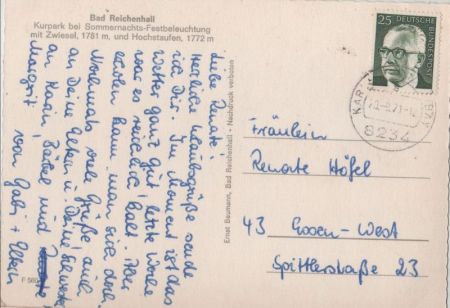 Bad Reichenhall
Kurpark bei Sommernachts-Festbeleuchtung
mit Zwiesel, 1781 m, und Hochstaufen, 1772 m
Liebe Renate!
Herzliche Urlaubsgrüße sende
ich Dir. Im Moment ist das
Wetter ganz gut, letzte Woche
war es reichlich kalt. Aber
erholen kann man sich doch.
Nochmals viele Grüße, auch
an Deine Eltern u. Deine Schwester
an Bärbel und
Margrit von Gabi + Eltern
F 569
Ernst Baumann, Bad Reichenhall - Nachdruck verboten
25 DEUTSCHE BUNDESPOST
8232
Fräulein
Renate Höfel
43 Essen-West
Spittlerstraße 23